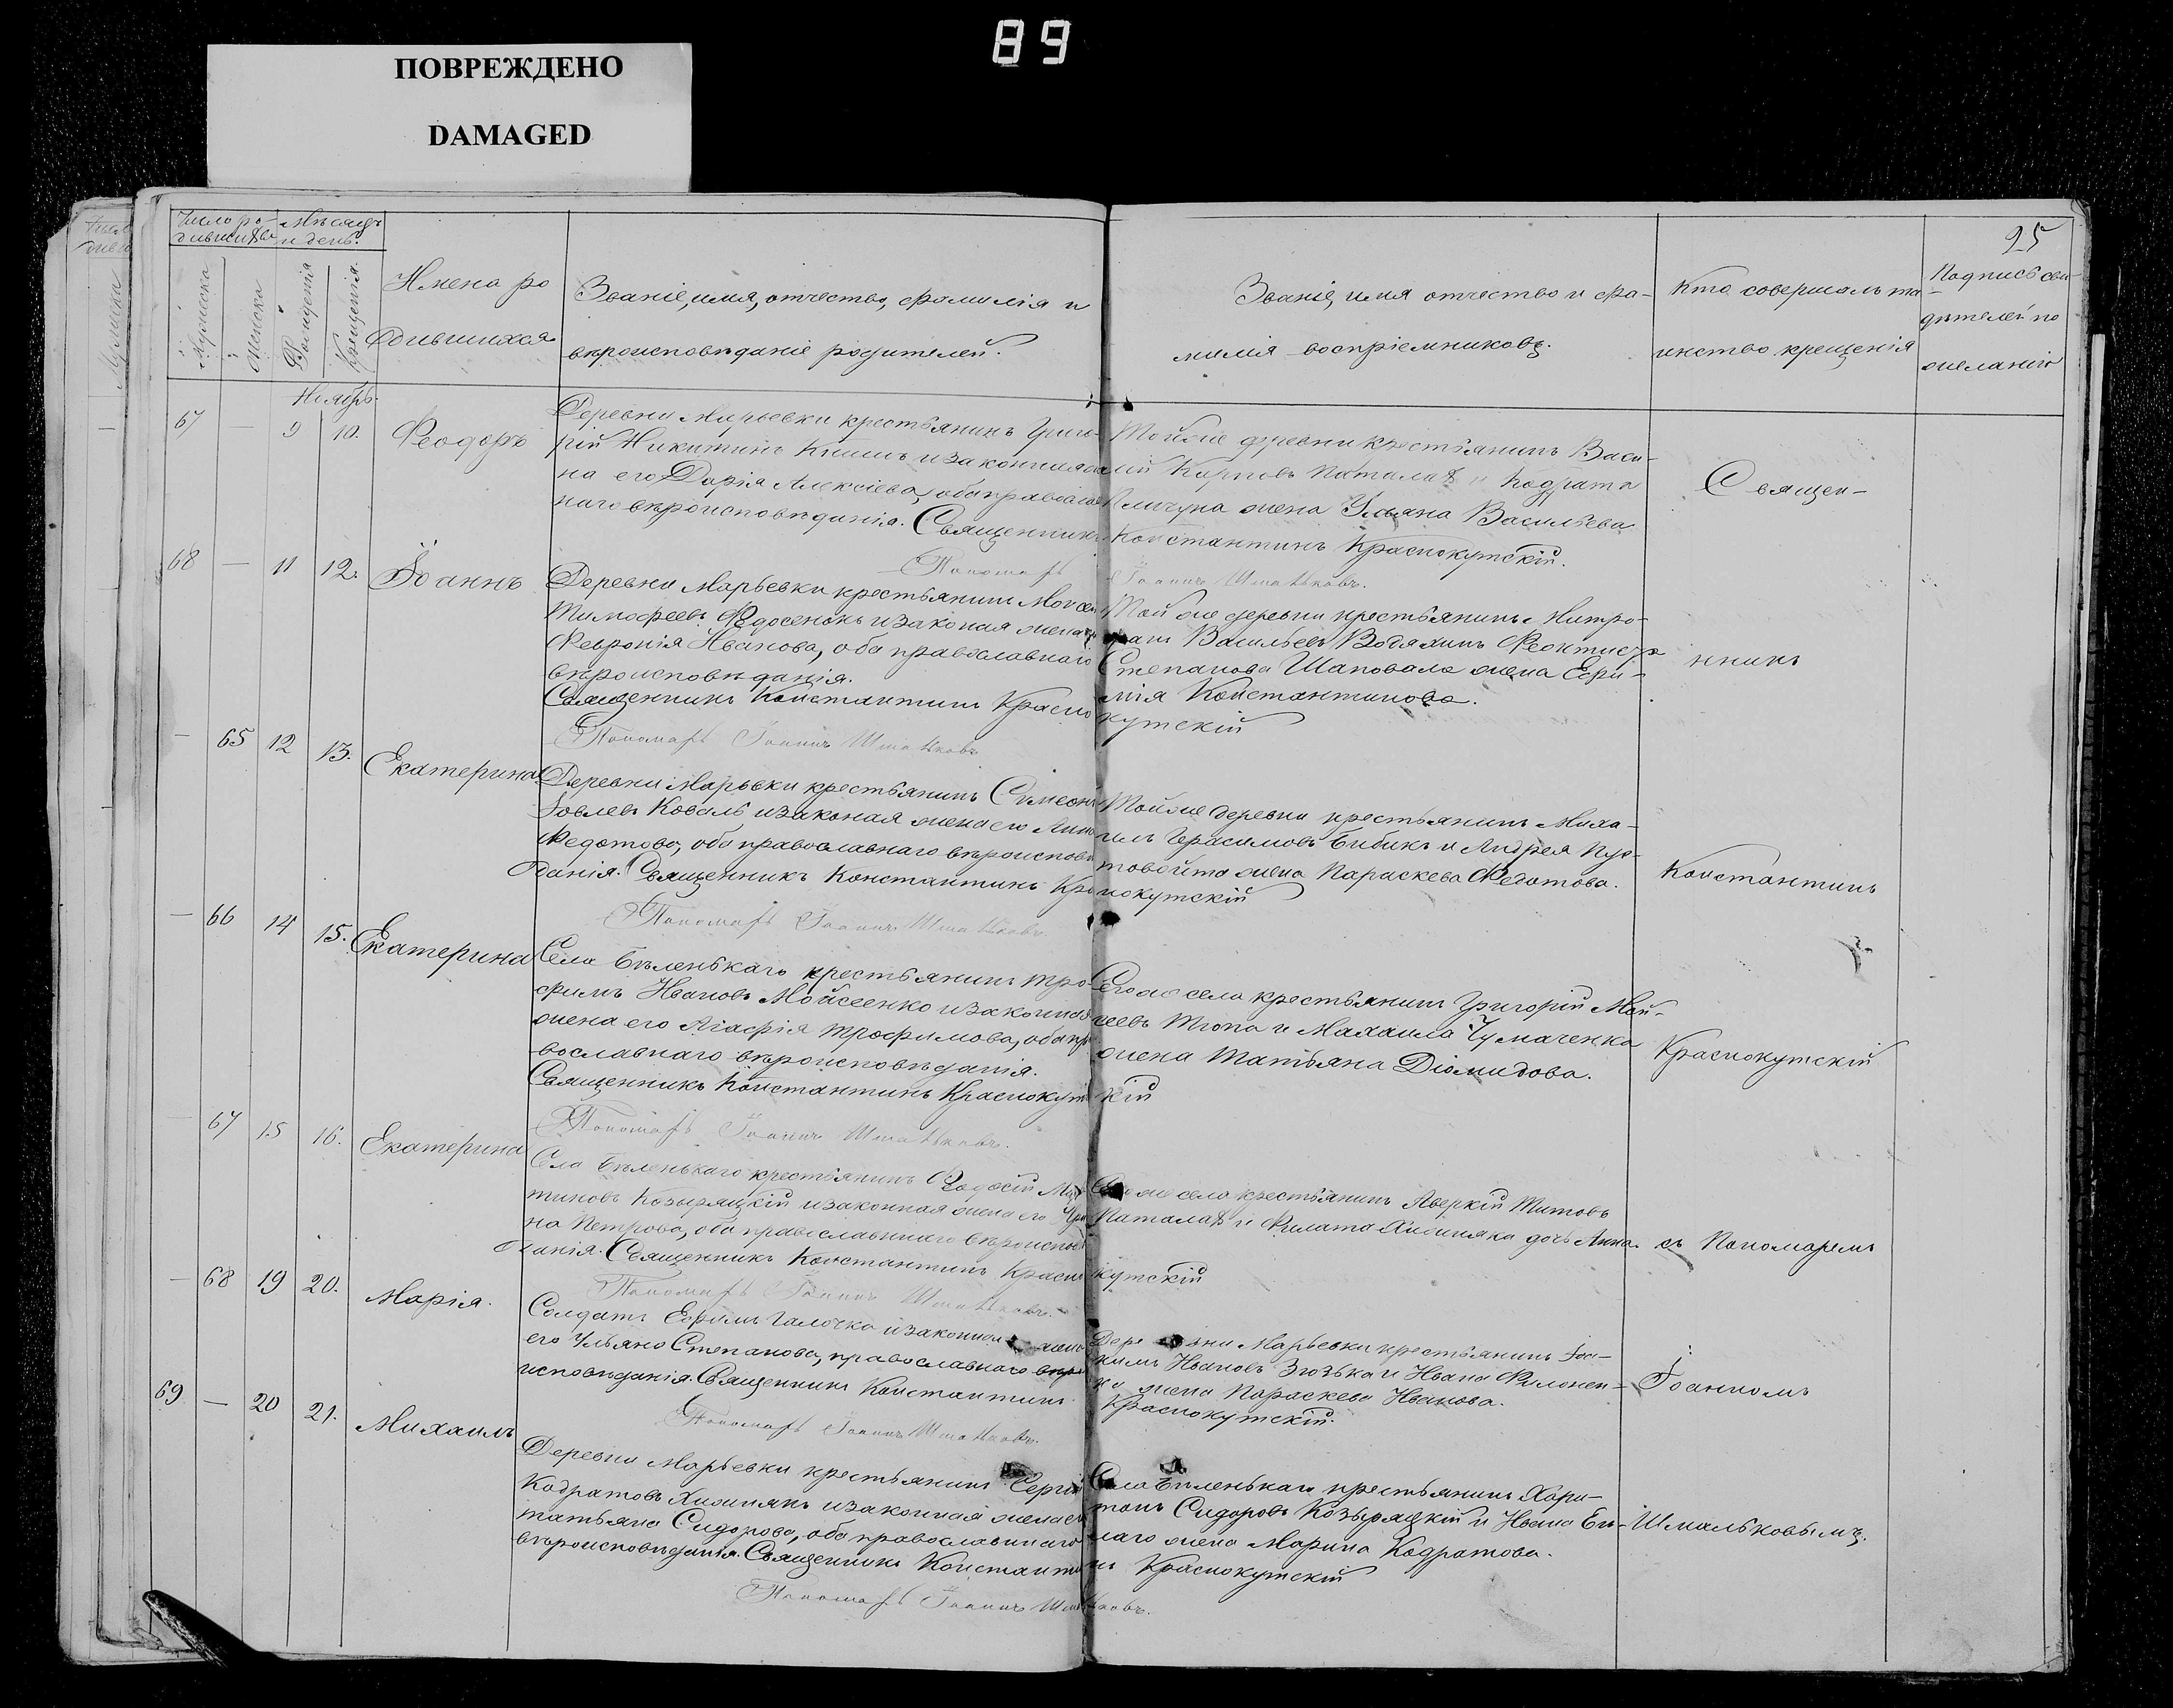 89
ПОВРЕЖДЕНО
DAMAGED
25
Число ро-
дившихся
Мѣсяцъ
и день.
Мужеска
Женска
Рожденія
Крещенія.
Имена ро
дившихся
Званіе, имя, отчество, фамилія и
вѣроисповѣданіе родителей.
Званіе, имя отчество и фа-
милія воспріемниковъ.
Кто совершалъ та
инство крещенія
Подпись сви-
дѣтелей по
желанію
Ноябрь.
67 — 9 10. Феодоръ
Деревни Марьевки крестьянинъ Григо-
рій Никитинъ и законная же
на его Дарія Алексіева, оба православ
наго вѣроисповѣданія. Священникъ
Пономарь
Той же деревни крестьянинъ Васи-
лій Карповъ Паталах и Кодрата
жена Ульяна Васильева
Константинъ Краснокутскій.
Іоаннъ Шмальковъ.
68 — 11 12. Іоаннъ
Деревни Марьевки крестьянинъ Моѵсей
Тимофеевъ Федосенокъ и законая жена
Февронія Иванова, оба православнаго
вѣроисповѣданія.
Священникъ Константинъ Красно
Пономарь Іоаннъ Шмальковъ
Той же деревни крестьянинъ Митро-
фанъ Васильевъ Водяникъ Феоктиста
Степанова Шаповала жена Евфи-
мія Константинова.
кутскій
— 65 12 13. Екатерина
Деревни Марьевки крестьянинъ Сѵмеонъ
Іовлевъ Коваль и законая жена его Анна
Федотова, оба православнаго вѣроисповѣ
данія. Священникъ Константинъ Крас
Пономарь Іоаннъ Шмальковъ.
Той же деревни крестьянинъ Миха-
илъ Герасимовъ Бибикъ и Андрея Пус-
товойта жена Параскева Федотова.
нокутскій
— 66 14 15. Екатерина
Села Бѣленькаго крестьянинъ Тро-
фимъ Ивановъ Мойсеенко и законная
жена его Агафія Трофимова, оба пра
вославнаго вѣроисповѣданія.
Священникъ Константинъ Краснокутс
Пономарь Іоаннъ Шмальковъ.
Его же села крестьянинъ Григорій Мой-
сеевъ Тюпа и Михаила Чумаченка
жена Татьяна Діомидова.
кій
— 67 15 16. Екатерина
Села Бѣленькаго крестьянинъ Феодосій Мар
тиновъ Козыряцкій и законная жена его Ири
на Петрова, оба православнаго вѣроисповѣ
данія. Священникъ Константинъ Красно
Пономарь Іоаннъ Шмальковъ.
же села крестьянинъ Аверкій Титовъ
Паталах и Филата Хижняка дочь Анна.
кутскій
— 68 19 20. Марія.
Солдатъ Ефимъ Галочка и законная жена
его Ульяна Степанова, православнаго вѣро
исповѣданія. Священникъ Константинъ
Пономарь Іоаннъ Шмальковъ.
Деревни Марьевки крестьянинъ Іоа-
кимъ Ивановъ Зюзька и Ивана Филонен-
ка жена Параскева Иванова.
Краснокутскій.
69 — 20 21. Михаилъ
Деревни Марьевки крестьянинъ Сергій
Кодратовъ Хижнякъ и законная жена его
Татьяна Сидорова, оба православнаго
вѣроисповѣданія. Священникъ Константи
Пономарь Іоаннъ Шмальковъ.
Села Бѣленькаго крестьянинъ Хари-
тонъ Сидоровъ Козыряцкій и Ивана Бѣ-
лаго жена Марина Кодратова.
нъ Краснокутскій
Священ-
никъ
Константинъ
Краснокутскій
съ Пономаремъ
Іоанномъ
Шмальковымъ.